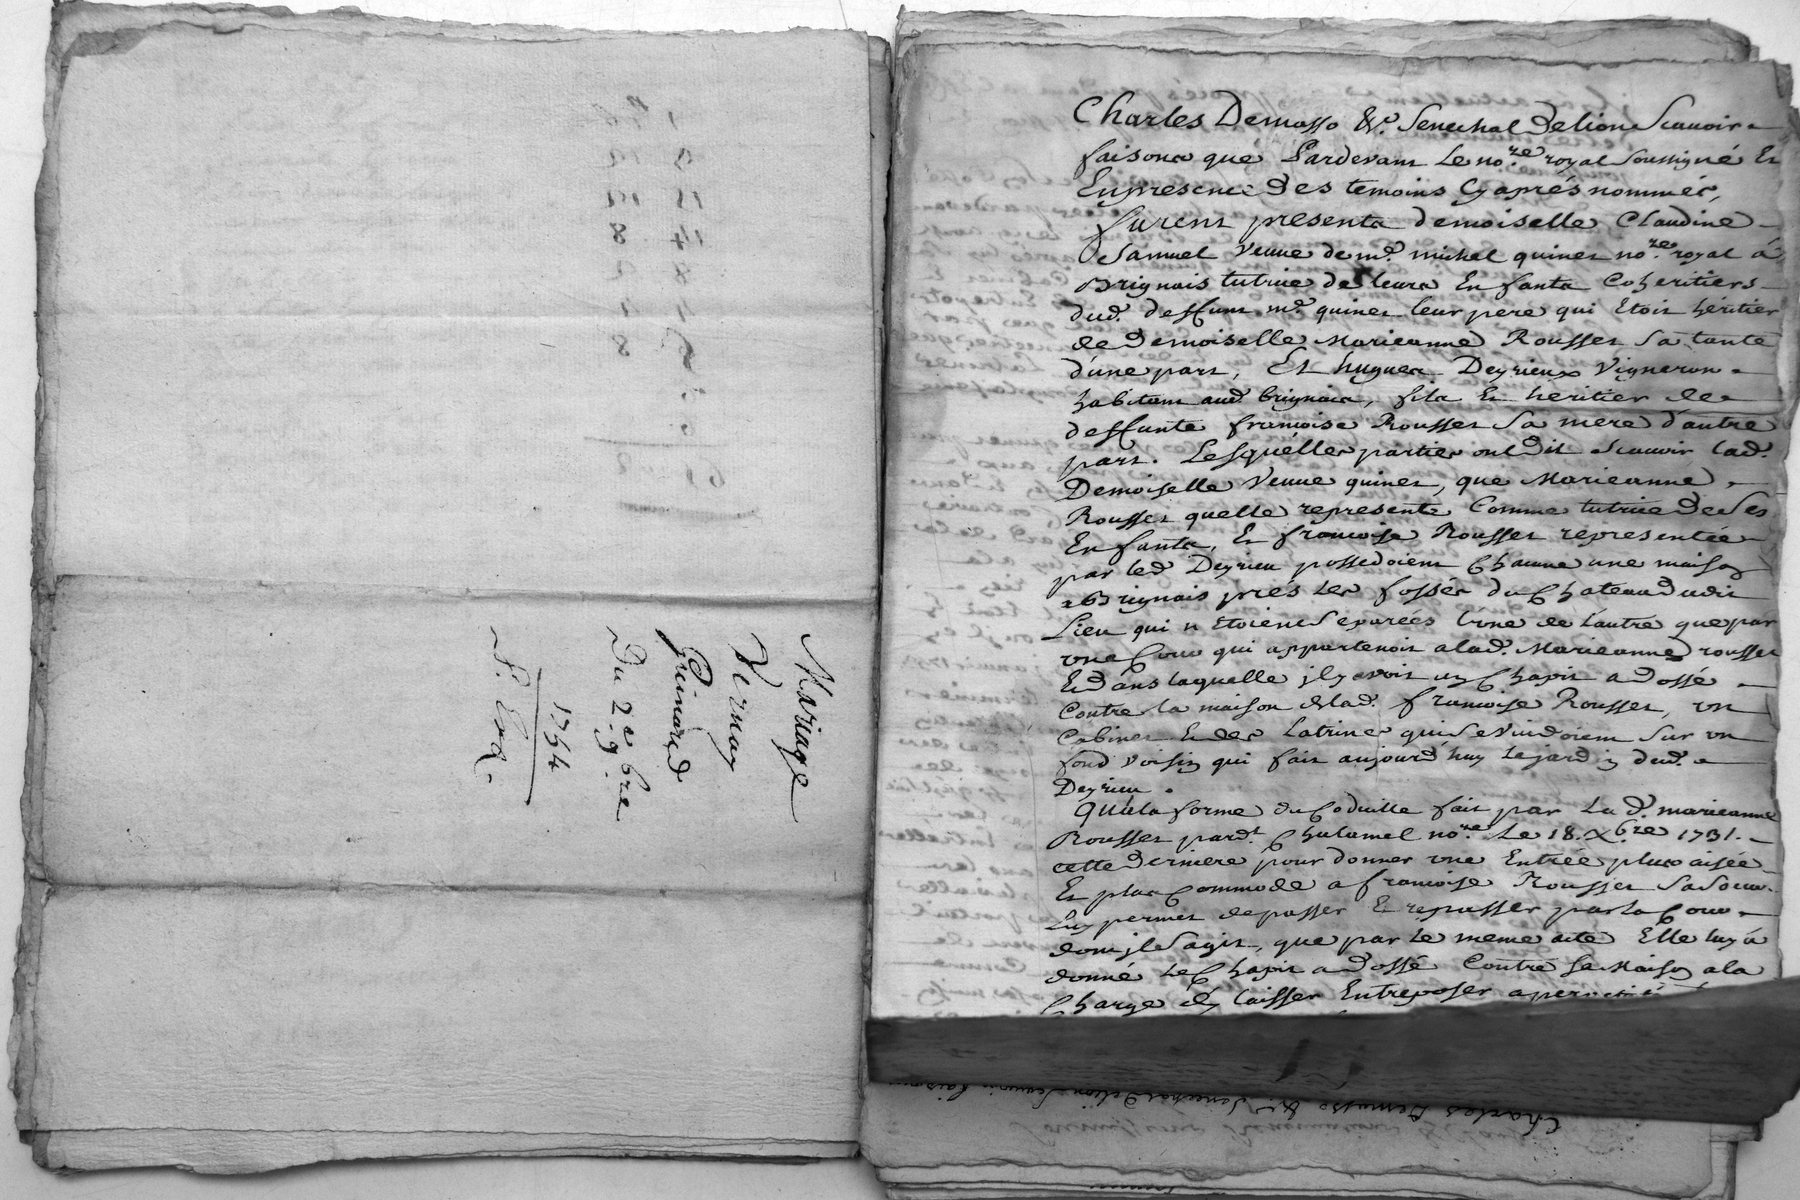 Mariage
Vernay
Guinard
Du 2e 9bre
1754
Charles Demasso &c. Senechal Delion Scauoir
faisons que Pardevant Le nore. royal soussigné Et
En presence Des temoins Cy aprés nommés,
furent presents demoiselle Claudine
Samuel veuve de me. michel quinet nore. royal á
Brignais tutrice de leurs Enfants Coheritiers
dud. deffunt me. quinet leur pere qui Etoit héritier
de Demoiselle Marieanne Rousset Sa tante
d'une part, Et hugues Deyrieux Vigneron
habitant aud. brignais, fils Et heritier de
deffunte françoise Rousset Sa mere d'autre
part. Lesquelles parties ont dit Scauoir lad.
Demoiselle Veuve quinet, que Marieanne
Rousset quelle represente Comme tutrice de Ses
Enfants, Et françoise Rousset representée
par led. Deyrieu possedoient Chacune une maison
a Brignais prés Les fossés du Chateau dudit
Lieu qui n'Etoient Separées l'une de l'autre que par
une Cour qui appartenoit a lad. Marieanne rousset
Et dans laquelle jl y avoit un Chapit adossé
Contre la maison de lad. françoise Rousset, un
Cabinet Et des Latrines qui Se Vuidoient Sur un
fond voisin qui fait aujourd'huy le jardin dud.
Deyrieu.
Qu'a la forme du Codicille fait par lad. marieanne
Rousset pardt. Chalamel nore. Le 18. Xbre 1731.
cette derniere pour donner une Entrée plus aisée
Et plus Commode a françoise Rousset Sa Soeur
Luy permet de passer Et repasser par la Cour
dont jl S'agit, que par le meme acte Elle luy a
donné Le Chapit adossé Contre Sa Maison a la
Charge d'y laisser Entreposer a perpetuité
Charles Demasso &c. Senechal Delion Scauoir faisons